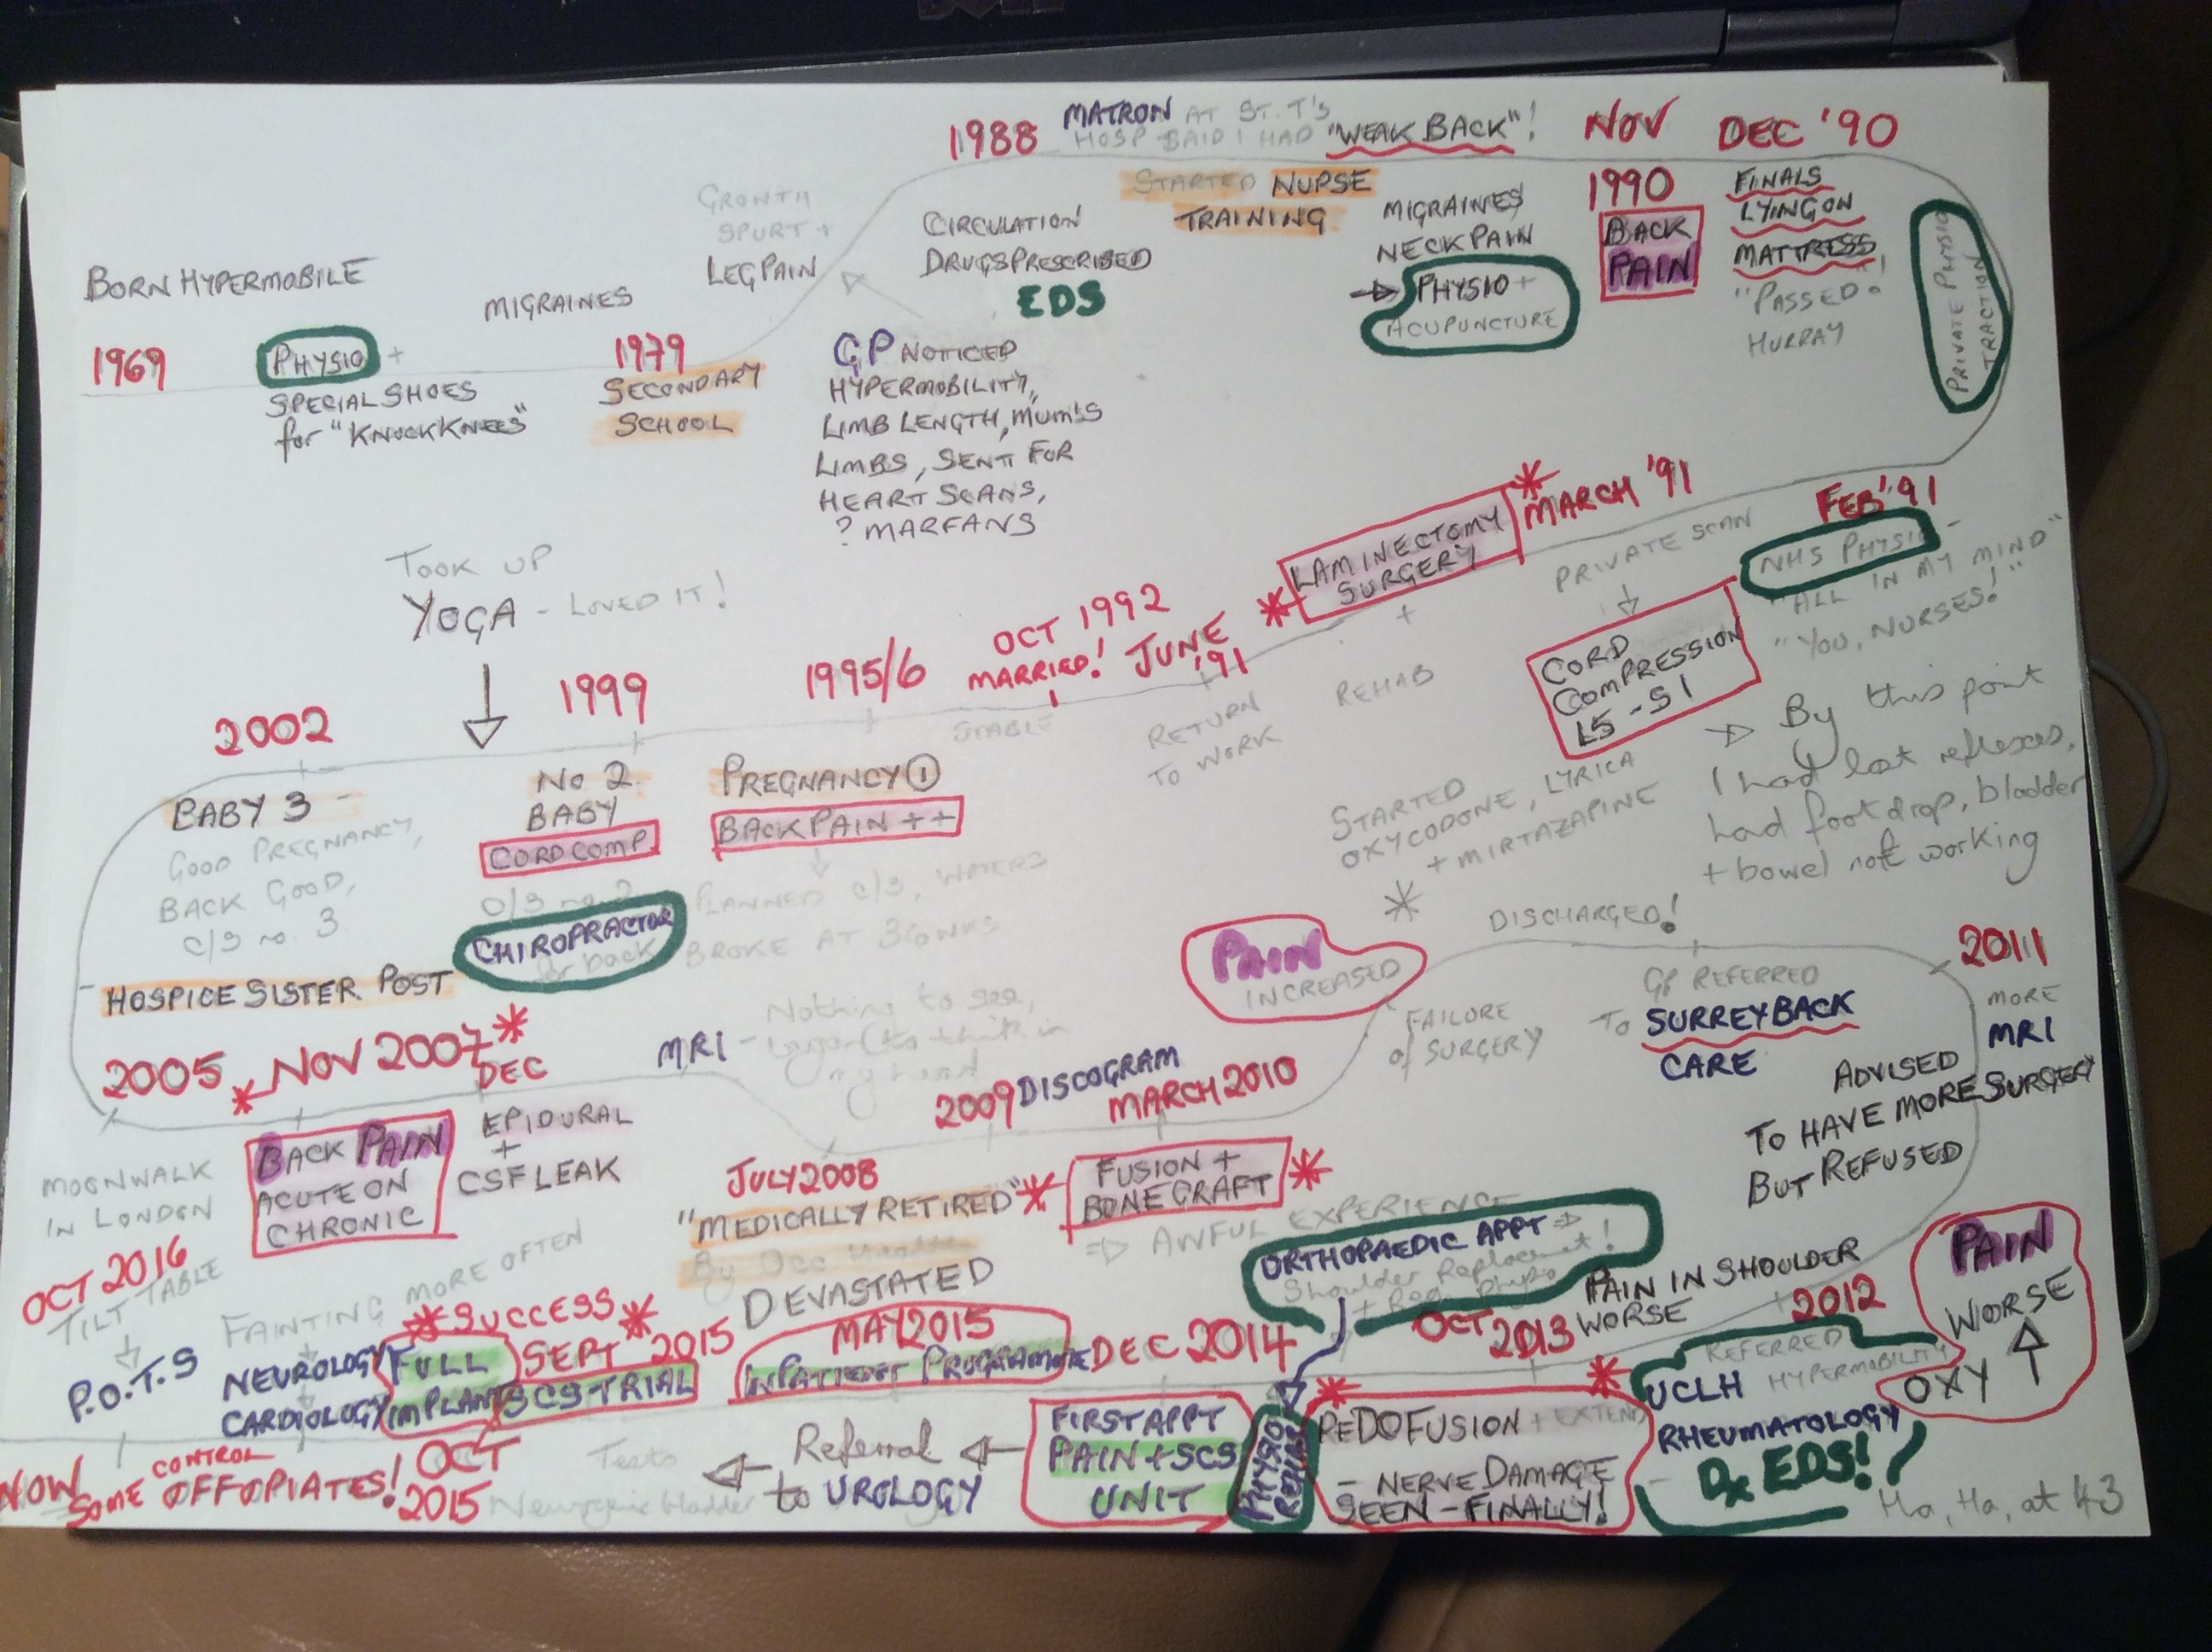 DELL
BORN HYPERMOBILE
1969
PHYSIO +
SPECIAL SHOES
for "KNOCK KNEES"
MIGRAINES
1979
SECONDARY
SCHOOL
GROWTH
SPURT +
LEG PAIN
GP NOTICED
HYPERMOBILITY,
LIMB LENGTH, MUM'S
LIMBS, SENT FOR
HEART SCANS,
? MARFANS
CIRCULATION
DRUGS PRESCRIBED
EDS
1988
MATRON AT ST. T'S
HOSP SAID I HAD "WEAK BACK"!
STARTED NURSE
TRAINING
MIGRAINES
NECK PAIN
PHYSIO +
ACUPUNCTURE
NOV
1990
BACK
PAIN
DEC '90
FINALS
LYING ON
MATTRESS
"PASSED"!
HURRAY
PRIVATE PHYSIO
TRACTION
FEB '91
NHS PHYSIO -
"ALL IN MY MIND"
"YOU, NURSES!"
PRIVATE SCAN
CORD
COMPRESSION
L5 - S1
By this point
I had lost reflexes,
had foot drop, bladder
+ bowel not working
MARCH '91
LAMINECTOMY
SURGERY
+
REHAB
STARTED
OXYCODONE, LYRICA
+ MIRTAZAPINE
JUNE
'91
RETURN
TO WORK
OCT 1992
MARRIED!
STABLE
1995/6
PREGNANCY 1
BACK PAIN ++
PLANNED C/S, WATERS
BROKE AT 36 WKS
1999
No 2
BABY
CORD COMP
C/S no. 2
CHIROPRACTOR
for back
TOOK UP
YOGA - LOVED IT!
2002
BABY 3 -
GOOD PREGNANCY,
BACK GOOD,
C/S no. 3.
HOSPICE SISTER POST
2005
MOONWALK
IN LONDON
NOV 2007
BACK PAIN
ACUTE ON
CHRONIC
DEC
EPIDURAL
+
CSF LEAK
MRI - Nothing to see,
began to think in
my head
JULY 2008
"MEDICALLY RETIRED"
By Occ Health
DEVASTATED
2009 DISCOGRAM
MARCH 2010
FUSION +
BONE GRAFT
AWFUL EXPERIENCE
PAIN
INCREASED
FAILURE
of SURGERY
DISCHARGED!
GP REFERRED
TO SURREY BACK
CARE
2011
MORE
MRI
ADVISED
TO HAVE MORE SURGERY
BUT REFUSED
PAIN
WORSE
OXY
2012
REFERRED
UCLH HYPERMOBILITY
RHEUMATOLOGY
Dx EDS!
Ha, Ha, at 43
PAIN IN SHOULDER
WORSE
OCT 2013
REDO FUSION + EXTEND
- NERVE DAMAGE
SEEN - FINALLY!
ORTHOPAEDIC APPT
Shoulder Replacement!
PHYSIO
DEC 2014
FIRST APPT
PAIN + SCS
UNIT
Referral
to UROLOGY
Tests
Neurogenic bladder
MAY 2015
INPATIENT PROGRAMME
SEPT 2015
SCS TRIAL
SUCCESS
FULL
IMPLANT
OCT
2015
FAINTING MORE OFTEN
NEUROLOGY
CARDIOLOGY
OCT 2016
TILT TABLE
P.O.T.S
NOW
SOME CONTROL
OFF OPIATES!